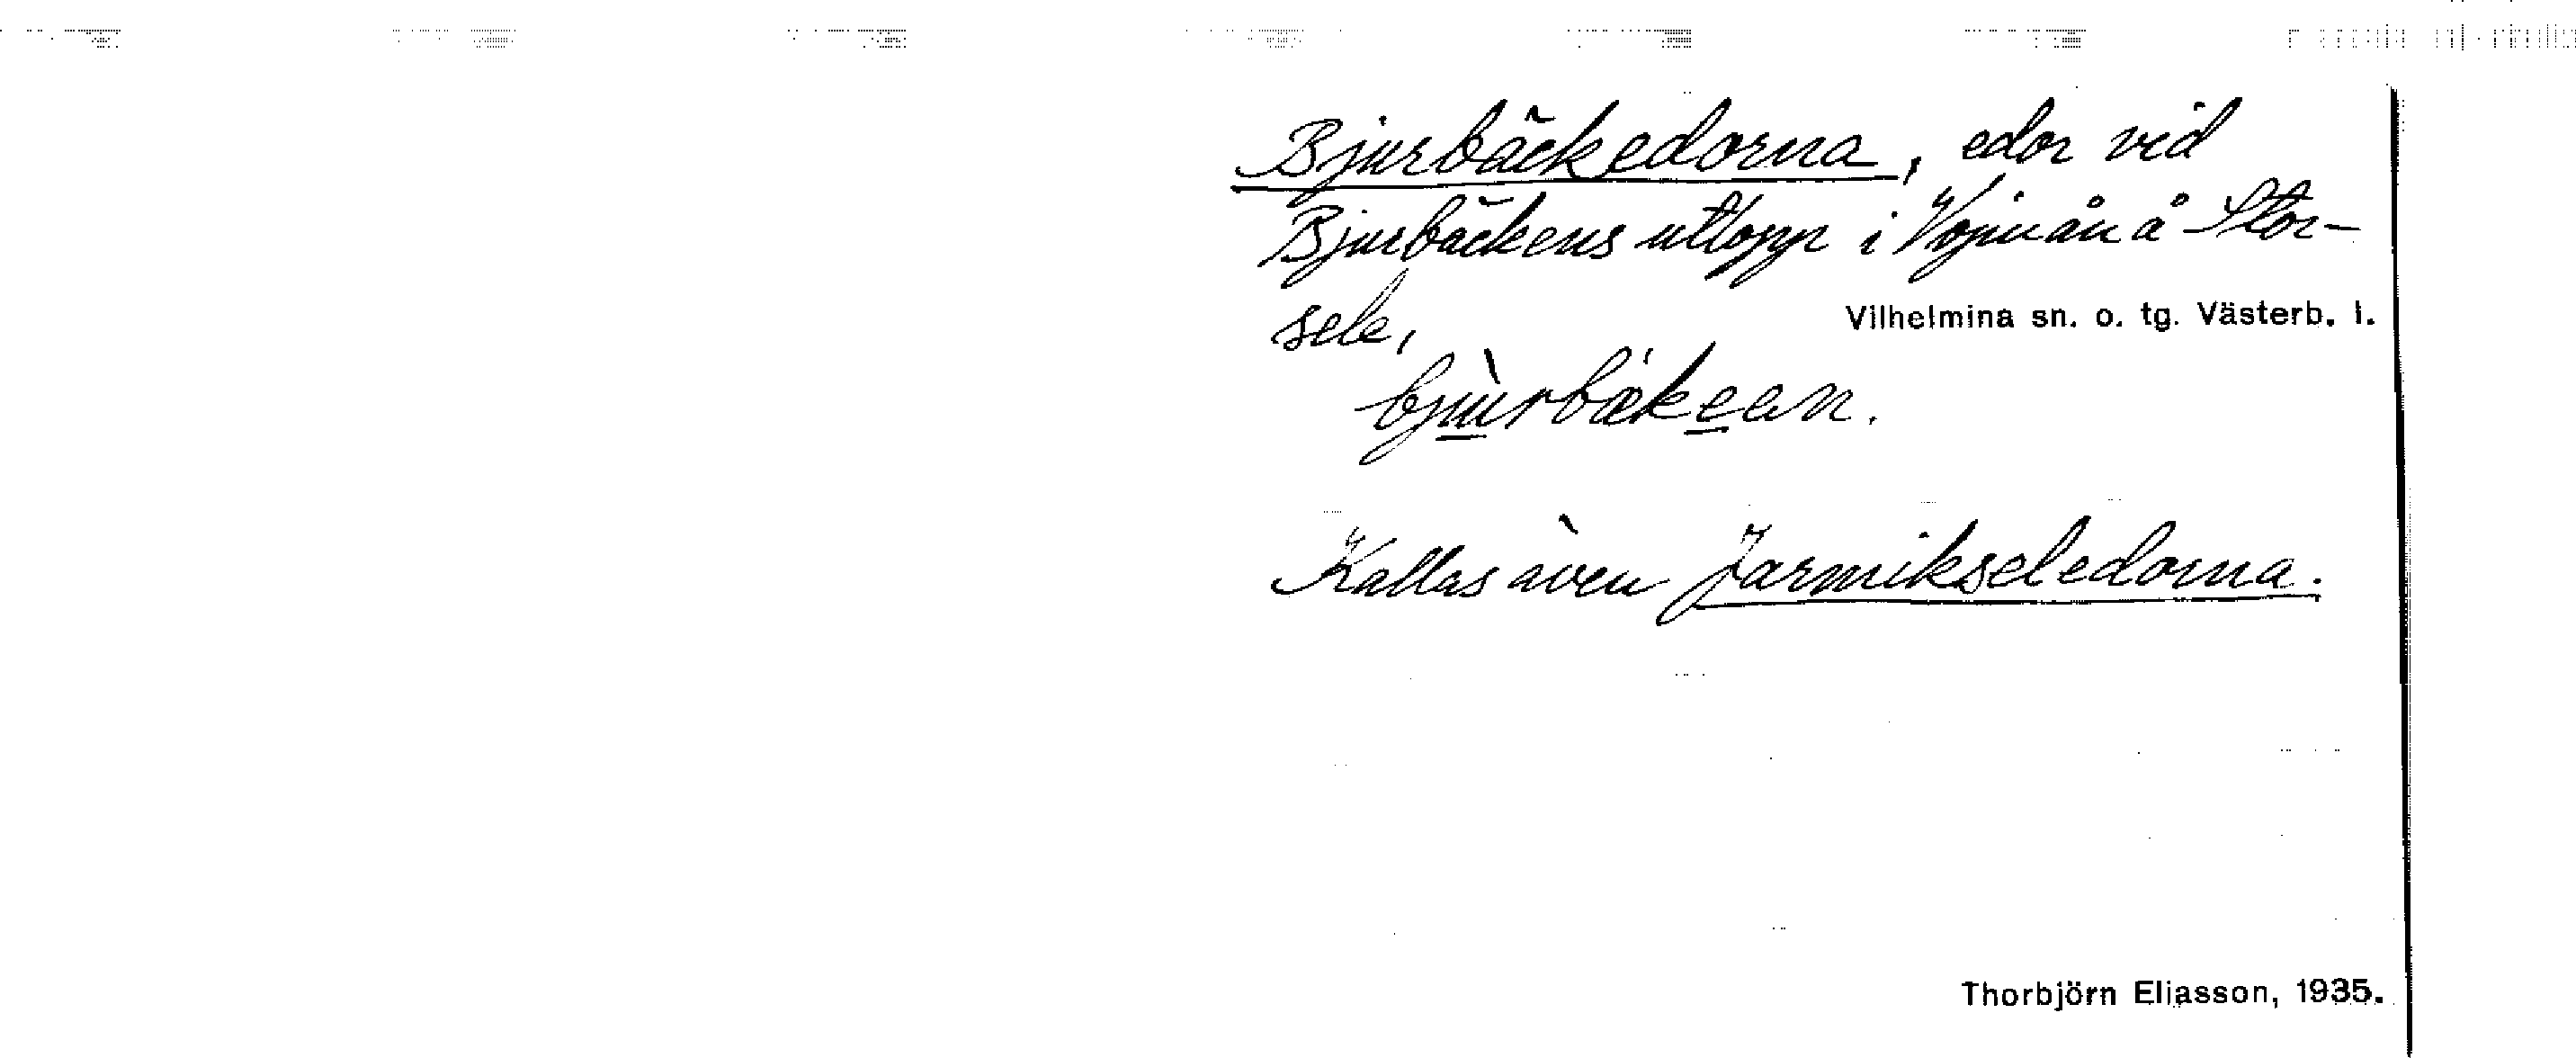 Bjurbäckedorna, edor vid
Bjurbäckens utlopp i Vojmån å Stor-
sele,
Vilhelmina sn. o. tg. Västerb. l.
Kallas även Jarmikseledorna.
Thorbjörn Eliasson, 1935.